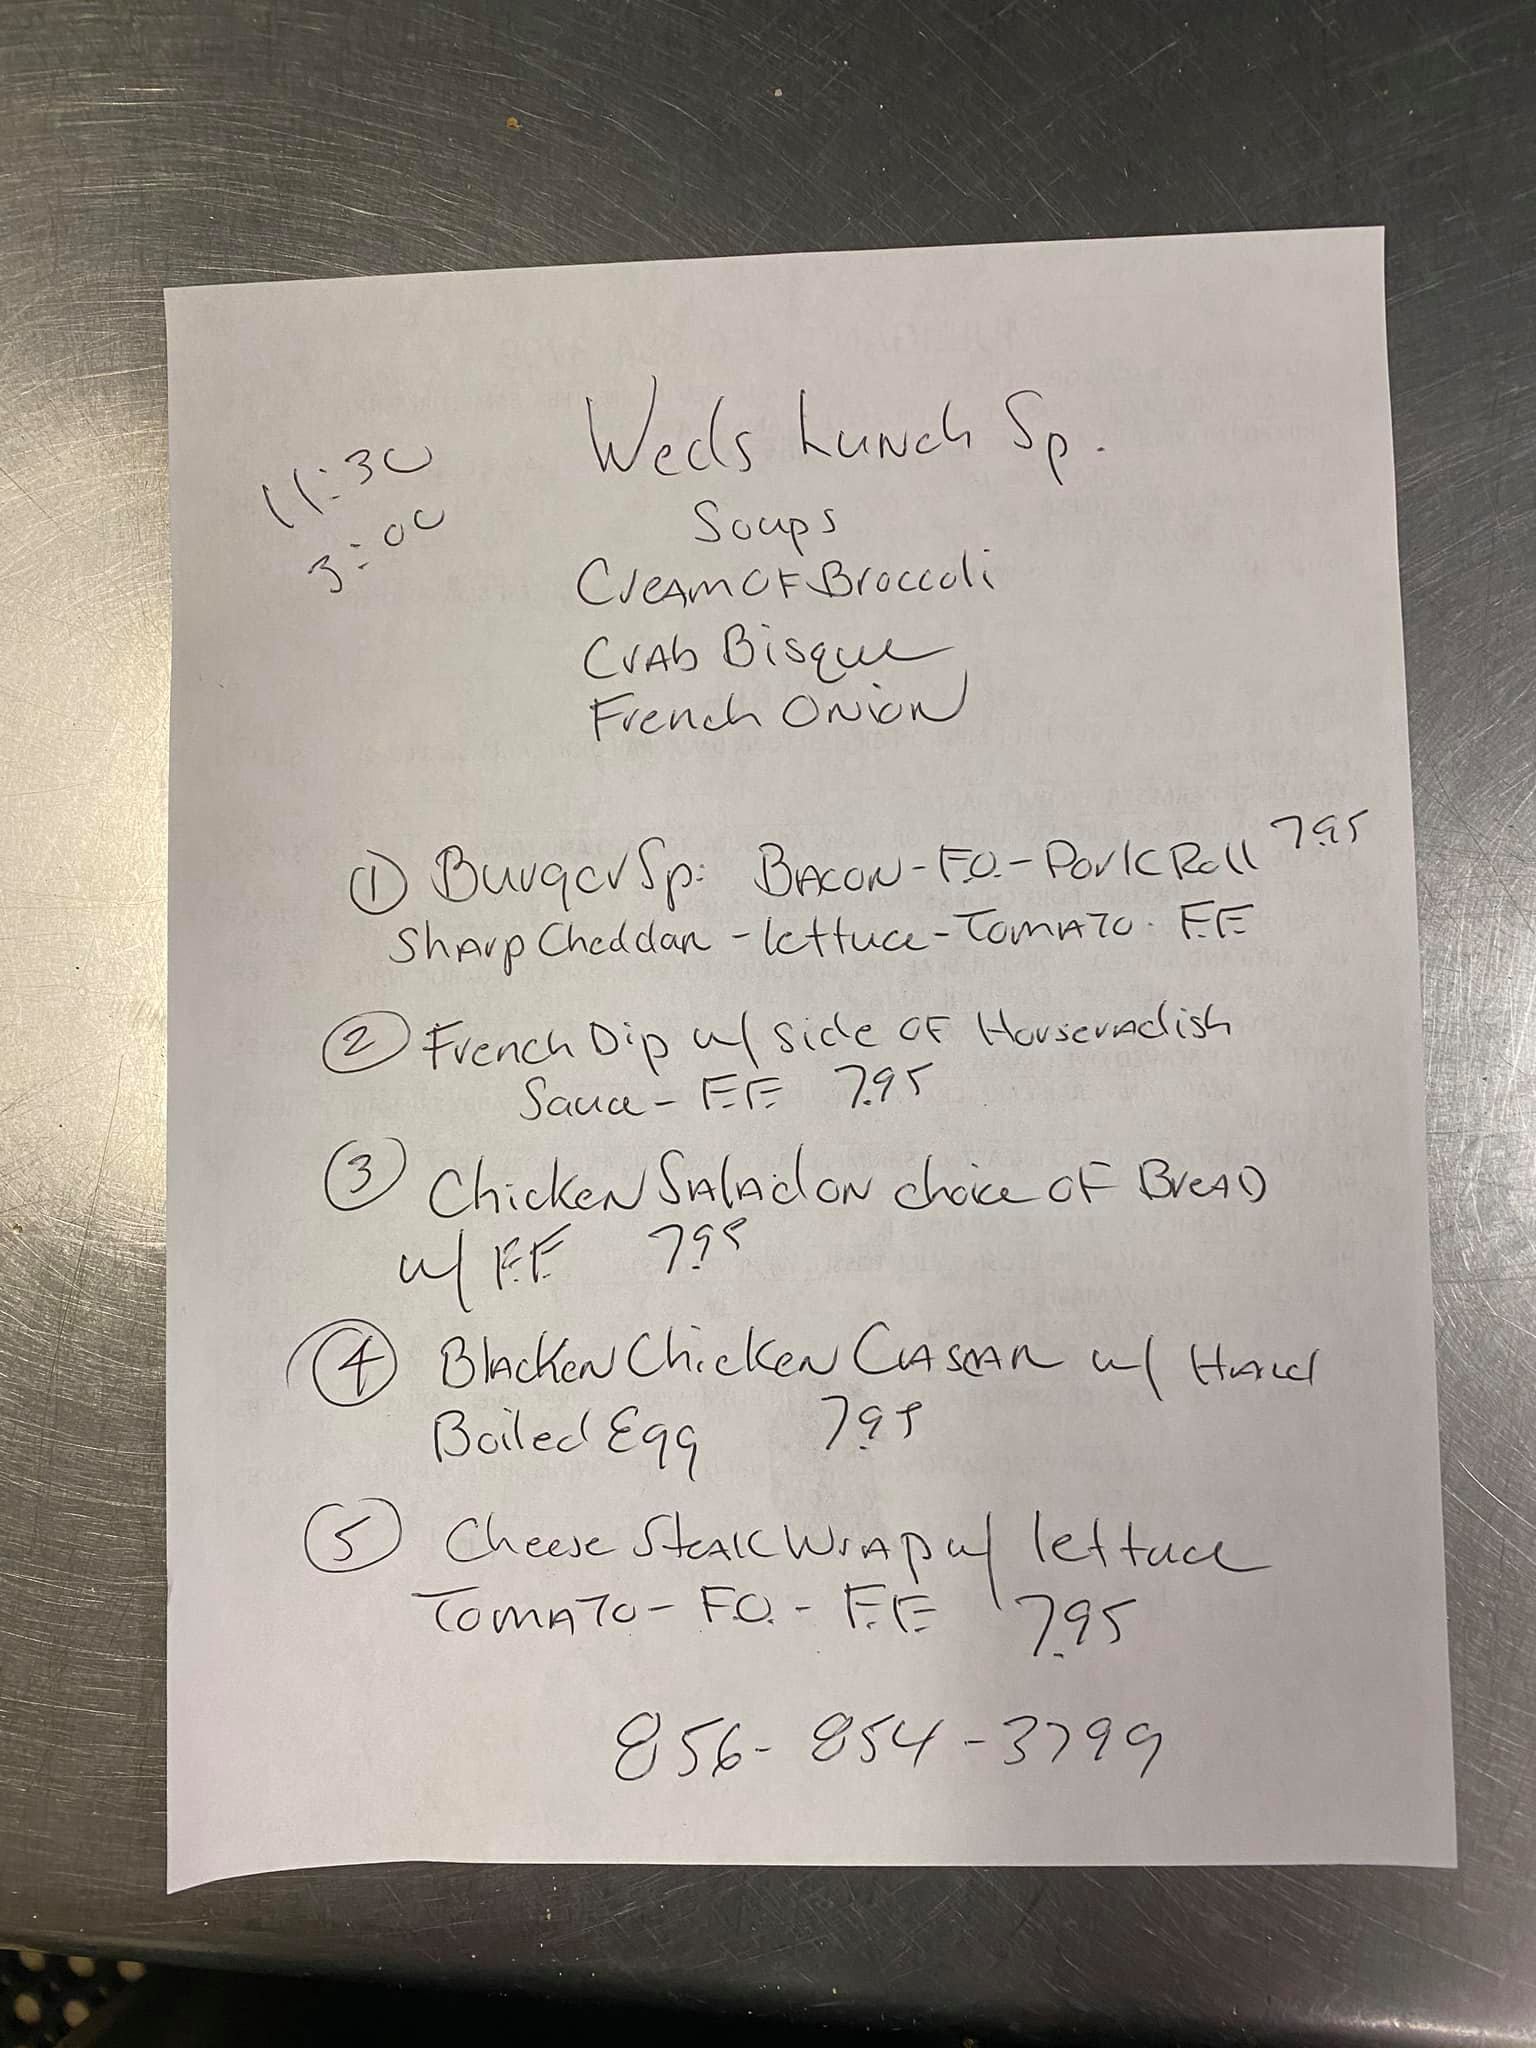 Weds Lunch Sp.
11:30
3:00
Soups
Cream OF Broccoli
Crab Bisque
French Onion
① Burger Sp: Bacon - F.O. - Pork Roll 7.95
Sharp Cheddar - lettuce - Tomato - F.F.
② French Dip w/ side OF Horseradish
Sauce - F.F. 7.95
③ Chicken Salad on choice OF Bread
w/ F.F. 7.95
④ Blacken Chicken Casear w/ Hard
Boiled Egg 7.95
⑤ Cheese Steak Wrap w/ lettuce
Tomato - F.O. - F.F. 7.95
856-854-3799